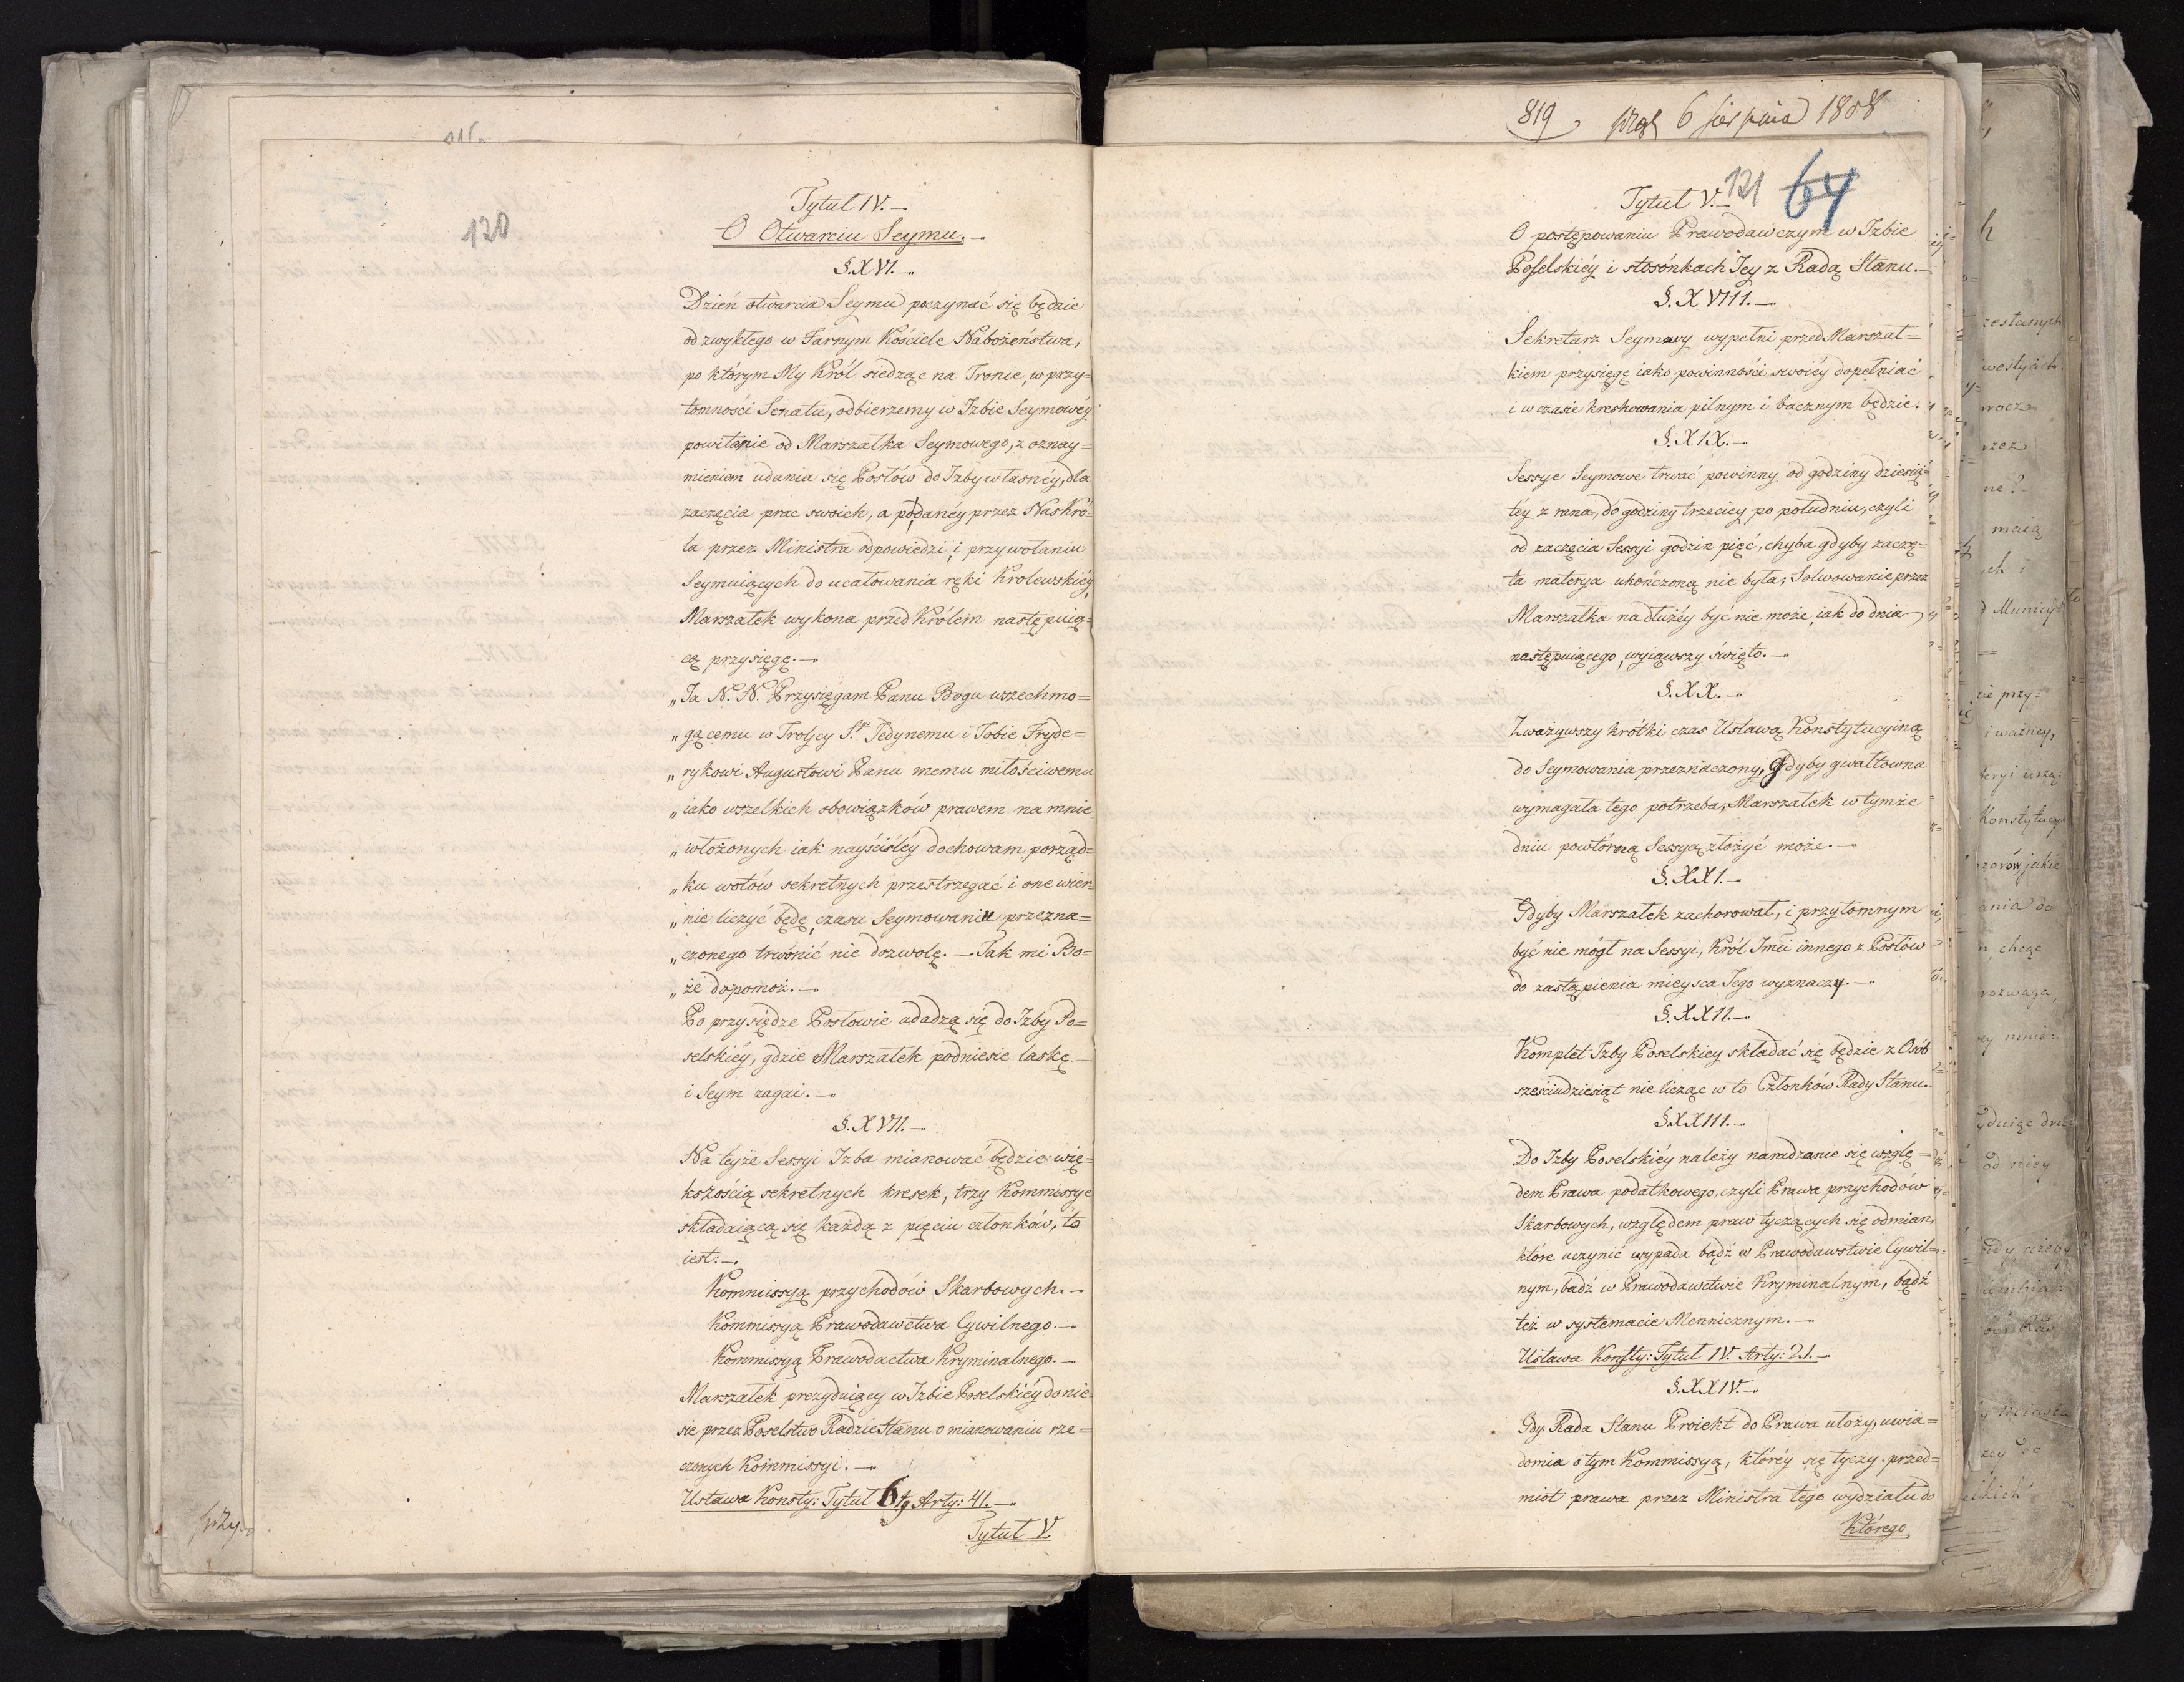 120
Tytuł IV.—
O Otwarciu Seymu.—
§. XVI.—
Dzień otwarcia Seymu poczynać się będzie
od zwykłego w Farnym Kościele Nabożeństwa,
po którym My Król siedząc na Tronie, w przy=
tomności Senatu, odbierzemy w Izbie Seymowéy
powitanie od Marszałka Seymowego, z oznay=
mieniem udania się Posłów do Izby własnéy, dla
zaczęcia prac swoich, a podanéy przez Nas Kró=
la przez Ministra odpowiedzi, i przywołaniu
Seymuiących do ucałowania ręki Krolewskiéy,
Marszałek wykona przed Królem następuią=
cą przysięgę.—
„Ja N. N. Przysięgam Panu Bogu wszechmo=
„gącemu w Troycy S.tey Jedynemu i Tobie Fryde=
„rykowi Augustowi Panu memu miłościwemu
„iako wszelkich obowiązków prawem na mnie
„włożonych iak nayściśléy dochowam, porząd=
„ku wotów sekretnych przestrzegać i one wier=
„nie liczyć będę, czasu Seymowania przezna=
„czonego trwónić nie dozwolę.— Tak mi Bo=
„że dopomoż.—
Po przysiędze Posłowie udadzą się do Izby Po=
selskiéy, gdzie Marszałek podniesie laskę
i Seym zagai.—
§. XVII.—
Na teyże Sessyi Izba mianować będzie wię=
kszością sekretnych kresek, trzy Kommissye
składaiącą się każdą z pięciu członków, to
iest:—
Kommissyą przychodów Skarbowych.—
Kommissyą Prawodawctwa Cywilnego.—
Kommissyą Prawodactwa Kryminalnego.—
Marszałek prezyduiący w Izbie Poselskiéy donie=
sie przez Poselstwo Radzie Stanu o mianowaniu rze=
czonych Kommissyi.—
Ustawa Konsty: Tytuł 6ty Arty: 41.—
Tytuł V.
819 6 sierpnia 1808
121 64
Tytuł V.—
O postępowaniu Prawodawczym w Izbie
Poselskiéy i stosónkach Jey z Radą Stanu.—
§. XVIII.—
Sekretarz Seymowy wypełni przed Marszał=
kiem przysięgę iako powinności swoiéy dopełniać
i w czasie kreskowania pilnym i bacznym będzie.
§. XIX.—
Sessye Seymowe trwać powinny od godziny dziesią=
téy z rana, do godziny trzeciey po południu, czyli
od zaczęcia Sessyi godzin pięć, chyba gdyby zaczę=
ta materya ukończoną nie była; Solwowanie przez
Marszałka nadłużéy być nie może, iak do dnia
następuiącego, wyiąwszy święto.—
§. XX.—
Zważywszy krótki czas Ustawą Konstytucyiną
do Seymowania przeznaczony, Gdyby gwałtowna
wymagała tego potrzeba, Marszałek w tymże
dniu powtórną Sessyą złożyć może.—
§. XXI.—
Gdyby Marszałek zachorował, i przytomnym
być nie mógł na Sessyi, Król Jmć innego z Posłów
do zastąpienia mieysca Jego wyznaczy.—
§. XXII.—
Komplet Izby Poselskiey składać się będzie z Osób
sześciudziesiąt nie licząc w to Członków Rady Stanu.
§. XXIII.—
Do Izby Poselskiéy należy naradzanie się wzglę=
dem Prawa podatkowego, czyli Prawa przychodów
Skarbowych, względem praw tyczących się odmian,
które uczynić wypada bądź w Prawodawstwie Cywil=
nym, bądź w Prawodawctwie Kryminalnym, bądź
też w systemacie Mennicznym.—
Ustawa Konsty: Tytuł IV. Arty: 21.—
§. XXIV.—
Gdy Rada Stanu Proiekt do Prawa ułoży, uwia=
domia o tym Kommissyą, któréy się tyczy przed=
miot prawa przez Ministra tego wydziału do
Którego